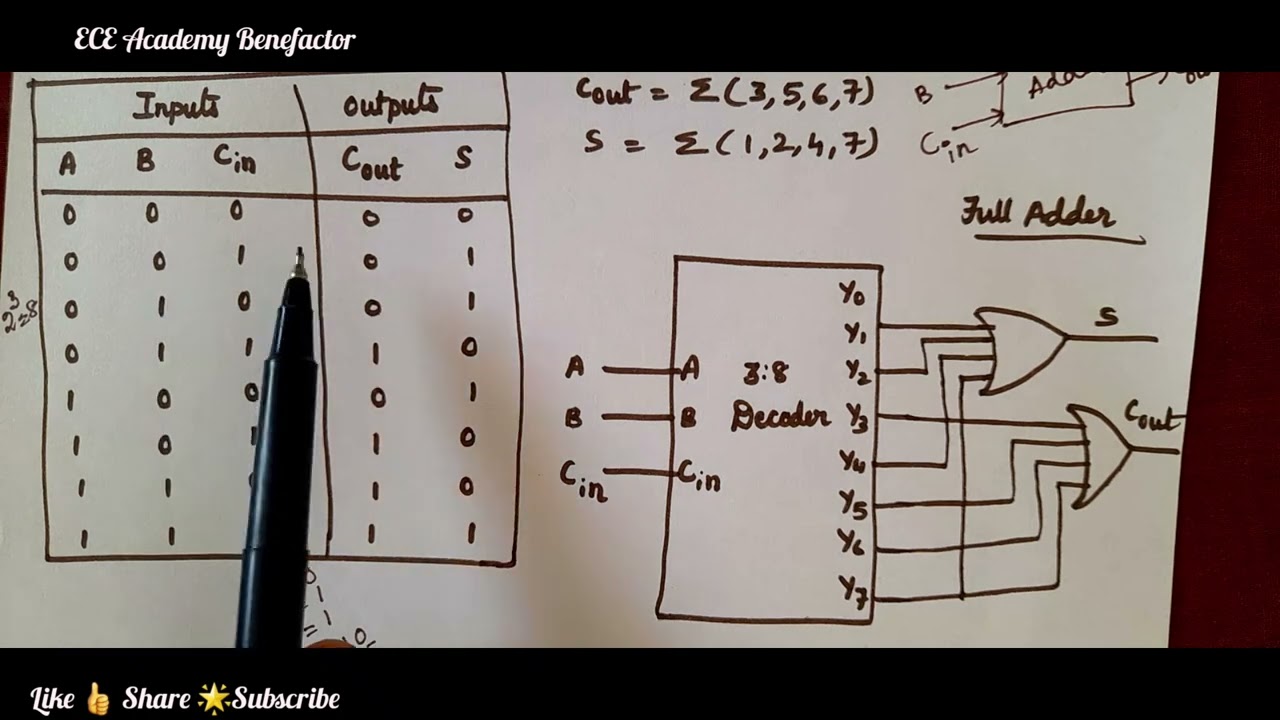 ECE Academy Benefactor
Inputs outputs
A B Cin Cout S
0 0 0 0 0
0 0 1 0 1
0 1 0 0 1
0 1 1 1 0
1 0 0 0 1
1 0 1 1 0
1 1 1 0
1 1 1 1
2³=8
Cout = Σ(3,5,6,7)
S = Σ(1,2,4,7)
B
Cin
Full Adder
A
B
Cin
A
B
Cin
3:8
Decoder
Y0
Y1
Y2
Y3
Y4
Y5
Y6
Y7
S
Cout
Like 👍 Share 🌟Subscribe